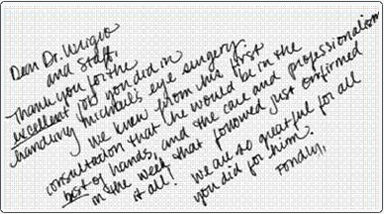 Dear Dr. Wright
and Staff,
Thank you for the
excellent job you did in
handling Michael's eye surgery.
We knew from his first
consultation that he would be in the
best of hands, and the care and professionalism
in the week that followed just confirmed
it all!
We are so greatful for all
you did for him.
Fondly,